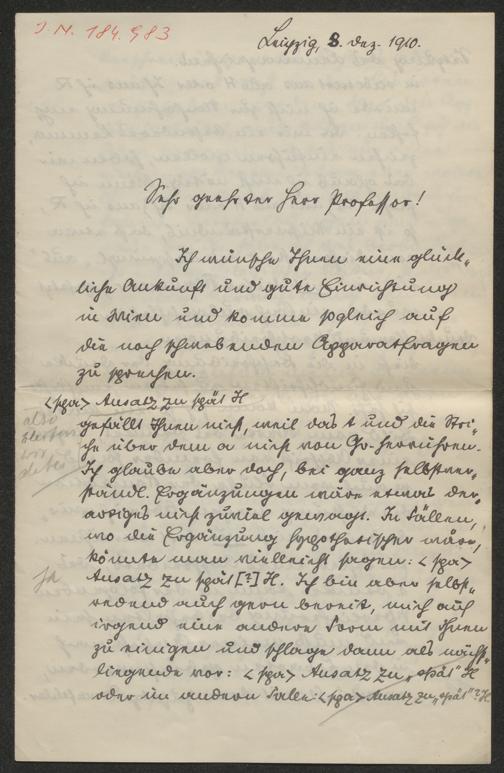 J. N. 184.983
Leipzig, 8. Dez. 1910.
Sehr geehrter Herr Professor!
Ich wünsche Ihnen eine glück-
liche Ankunft und gute Einrichtung
in Wien und komme sogleich auf
die noch schwebenden Apparatfragen
zu sprechen.
<spa> Ansatz zu spät H
gefällt Ihnen nicht, weil das t und die Stri-
che über dem a nicht von Gr. herrühren.
Ich glaube aber doch, bei ganz selbstver-
ständl. Ergänzungen wäre etwas der-
artiges nicht zuviel gewagt. In Fällen,
wo die Ergänzung hypothetischer wäre,
könnte man vielleicht sagen: <spa>
ja
Ansatz zu spät [?] H. Ich bin aber selbst-
redend auch gern bereit, mich auf
irgend eine andere Form mit Ihnen
zu einigen und schlage dann als nächst-
liegende vor: <spa> Ansatz zu „spät" H
oder im andern Falle: <spa> Ansatz zu „spät"? H
also